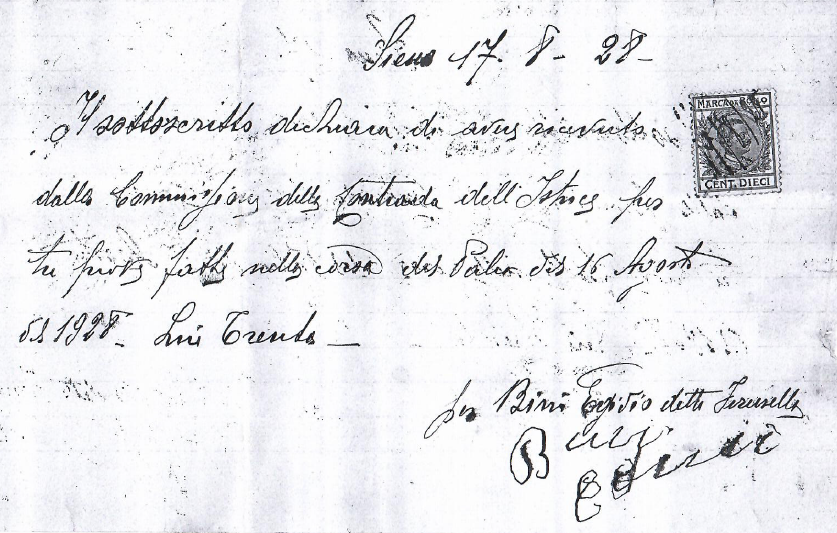 Siena 17. 8 - 28 -
Il sottoscritto dichiara di aver ricevuto
MARCA DA BOLLO
CENT. DIECI
dalla Commissione della Contrada dell'Istrice per
tre prove fatte nella corsa del Palio del 16 Agosto
del 1928 - Lire Trenta -
per Bini Egidio detto
Bini